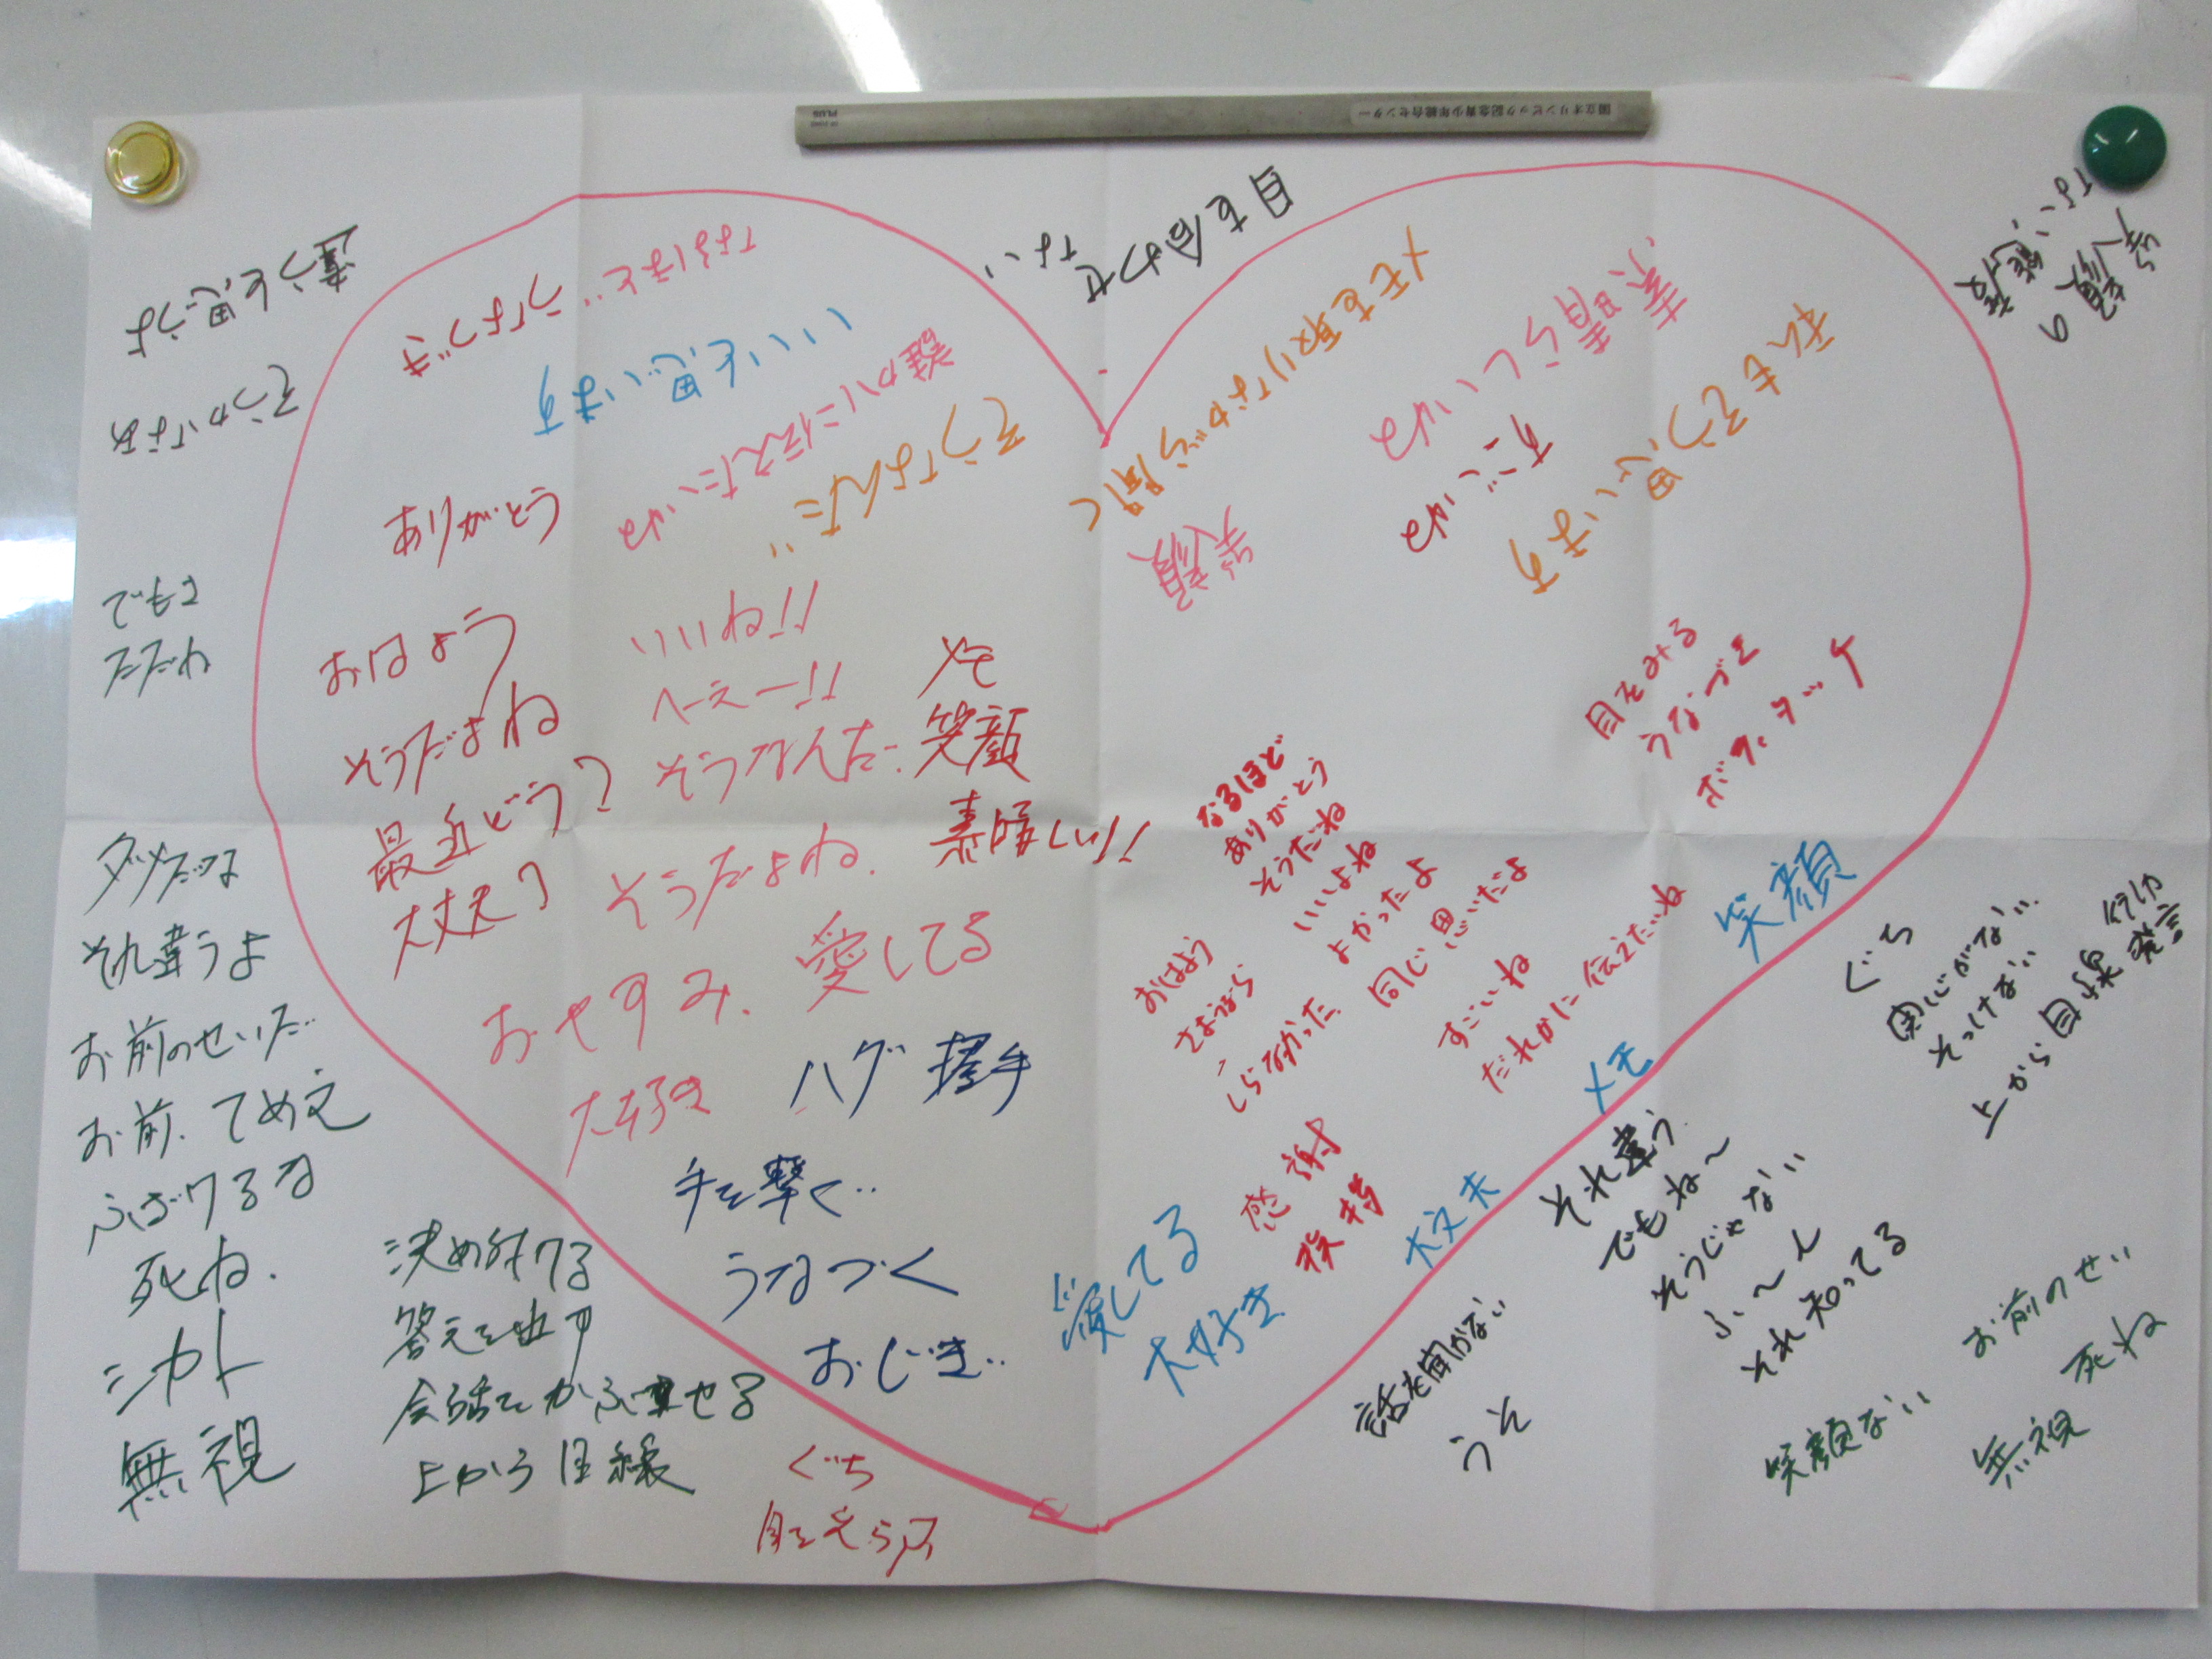 国立オリンピック記念青少年総合センター
PLUS
違うと思うよ
そうかなあ
なるほど…
いいと思います
誰かに伝えたいね
そうなんだ…
目を合わせ
ない
メモを取りながら聞く
笑顔
素晴らしいね
すごいね
私もそう思います
笑顔の
ない態度
ありがとう
おはよう
そうだよね
最近どう?
大丈夫?
いいね!!
へーえー!!
そうなんだ…
そうだよね.
おやすみ. 愛してる
大好き
メモ
笑顔
素晴しい!!
ハグ 握手
手を撃ぐ..
うなづく
おじぎ..
目をみる
うなづき
ボディタッチ
なるほど
ありがとう
そうだね
いいよね
よかったよ
同じ思いだよ
おはよう
さようなら
しらなかった
すごいね
だれかに伝えたいね
感謝
挨拶
笑顔
メモ
大丈夫
愛してる
大好き
でもさ
ただね
ダメだな
それ違うよ
お前のせいだ
お前. てめえ
ふざけるな
死ね.
シカト
無視
決め付ける
答えを出す
会話をかぶせる
上から目線
ぐち
目をそらす
ぐち
関心がない
そっけない
上から目線 行動
発言
それ違う
でもね〜
そうじゃない
ふ〜ん
それ知ってる
話を聞かない
うそ
お前のせい
死ね
笑顔ない
無視